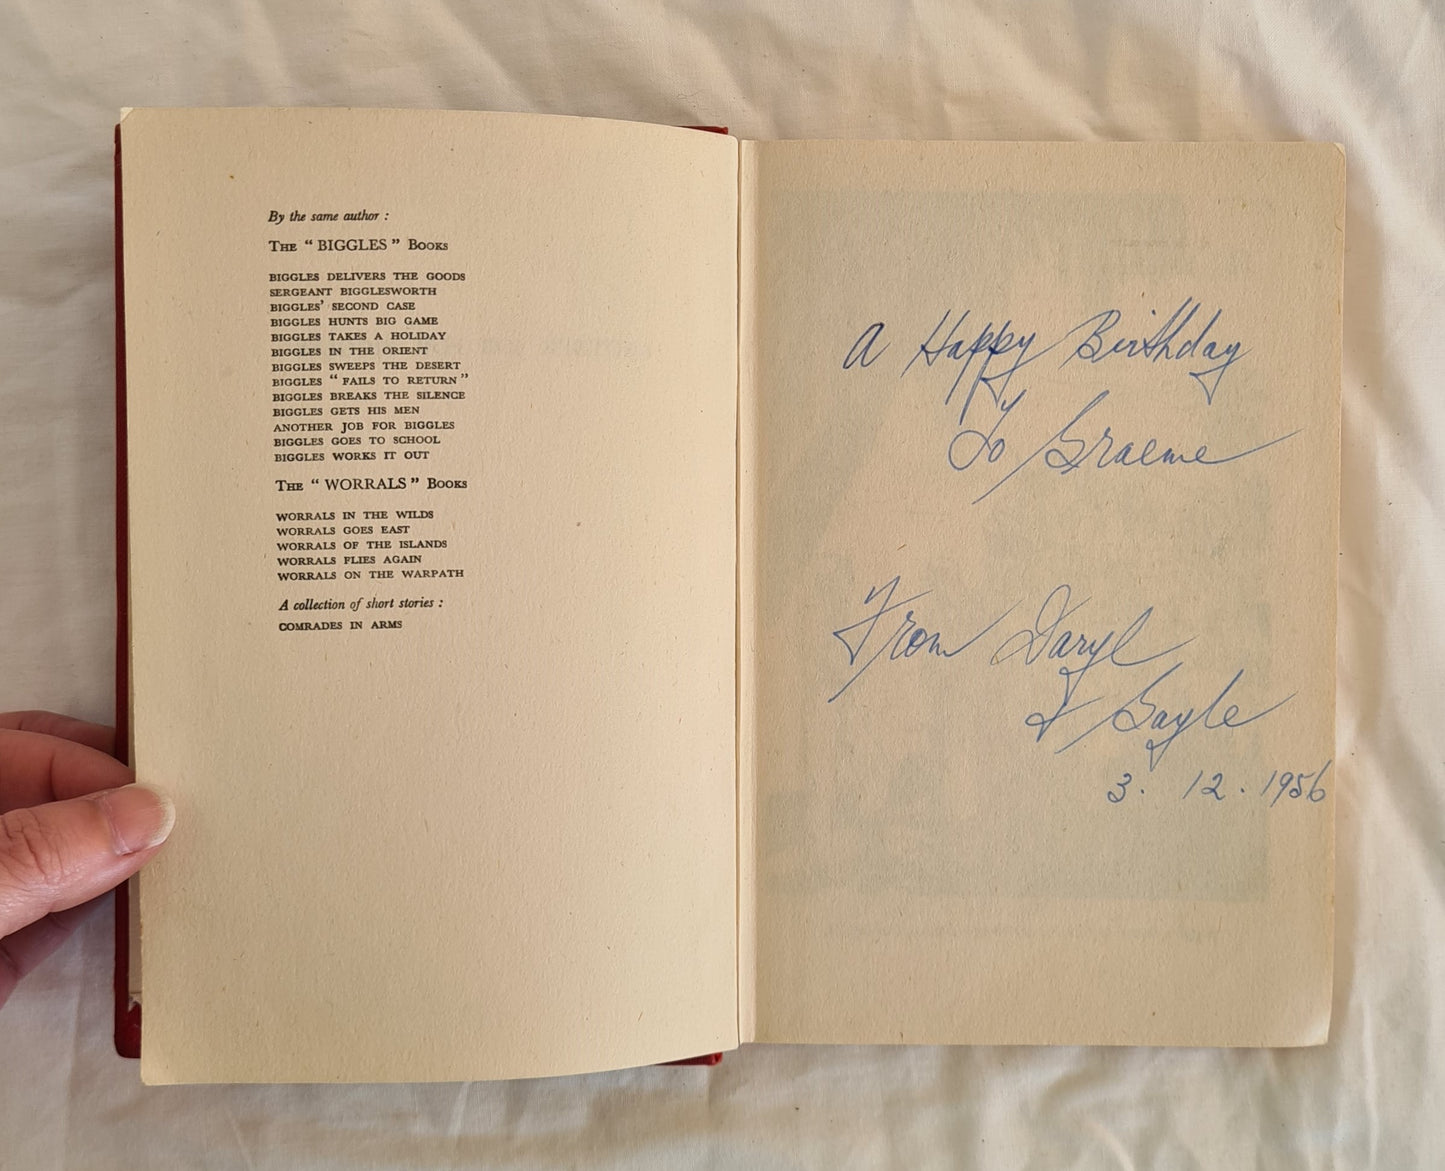 By the same author :
THE “ BIGGLES ” BOOKS
BIGGLES DELIVERS THE GOODS
SERGEANT BIGGLESWORTH
BIGGLES’ SECOND CASE
BIGGLES HUNTS BIG GAME
BIGGLES TAKES A HOLIDAY
BIGGLES IN THE ORIENT
BIGGLES SWEEPS THE DESERT
BIGGLES “ FAILS TO RETURN ”
BIGGLES BREAKS THE SILENCE
BIGGLES GETS HIS MEN
ANOTHER JOB FOR BIGGLES
BIGGLES GOES TO SCHOOL
BIGGLES WORKS IT OUT
THE “ WORRALS ” BOOKS
WORRALS IN THE WILDS
WORRALS GOES EAST
WORRALS OF THE ISLANDS
WORRALS FLIES AGAIN
WORRALS ON THE WARPATH
A collection of short stories :
COMRADES IN ARMS
A Happy Birthday
To Graeme
From Daryl
& Gayle
3. 12. 1956